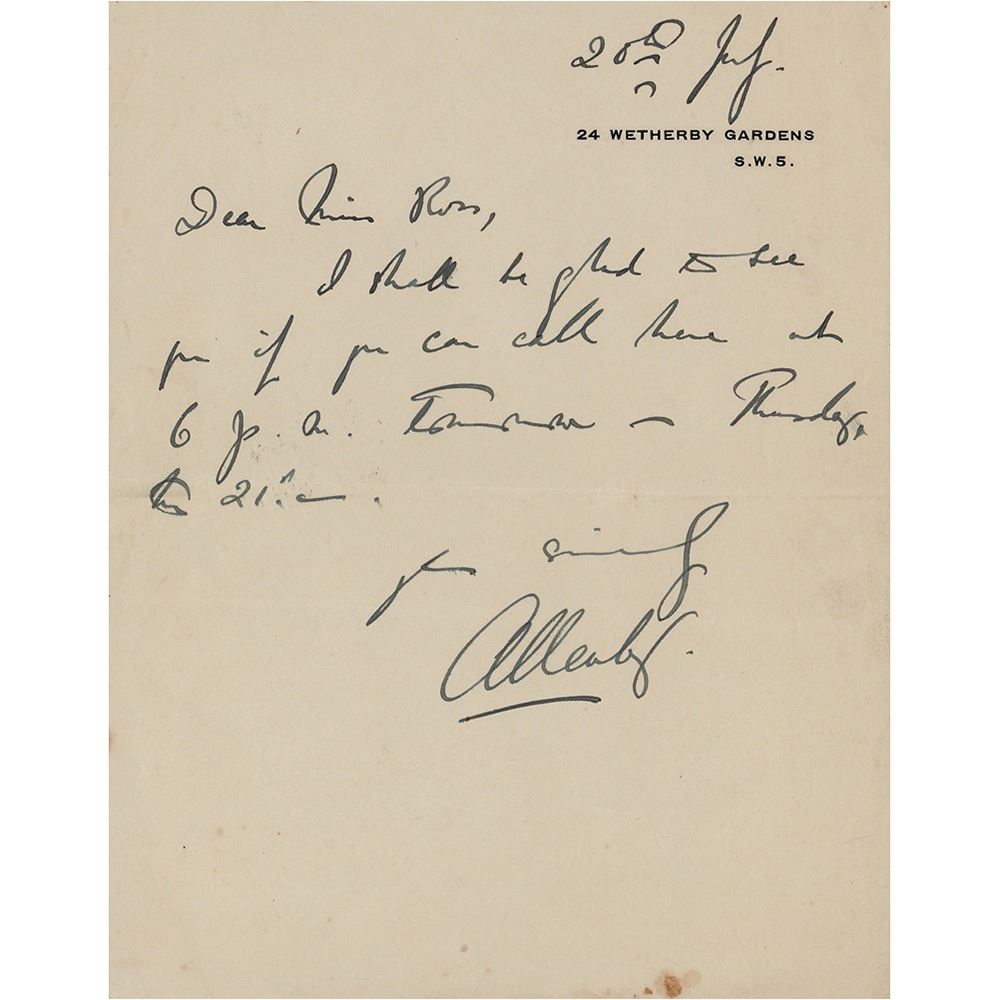 20th July.
24 WETHERBY GARDENS
S.W.5.
Dear Miss Ross,
I shall be glad to see
you if you can call here at
6 p.m. tomorrow – Thursday,
the 21st.
Yrs sincerely
Allenby.